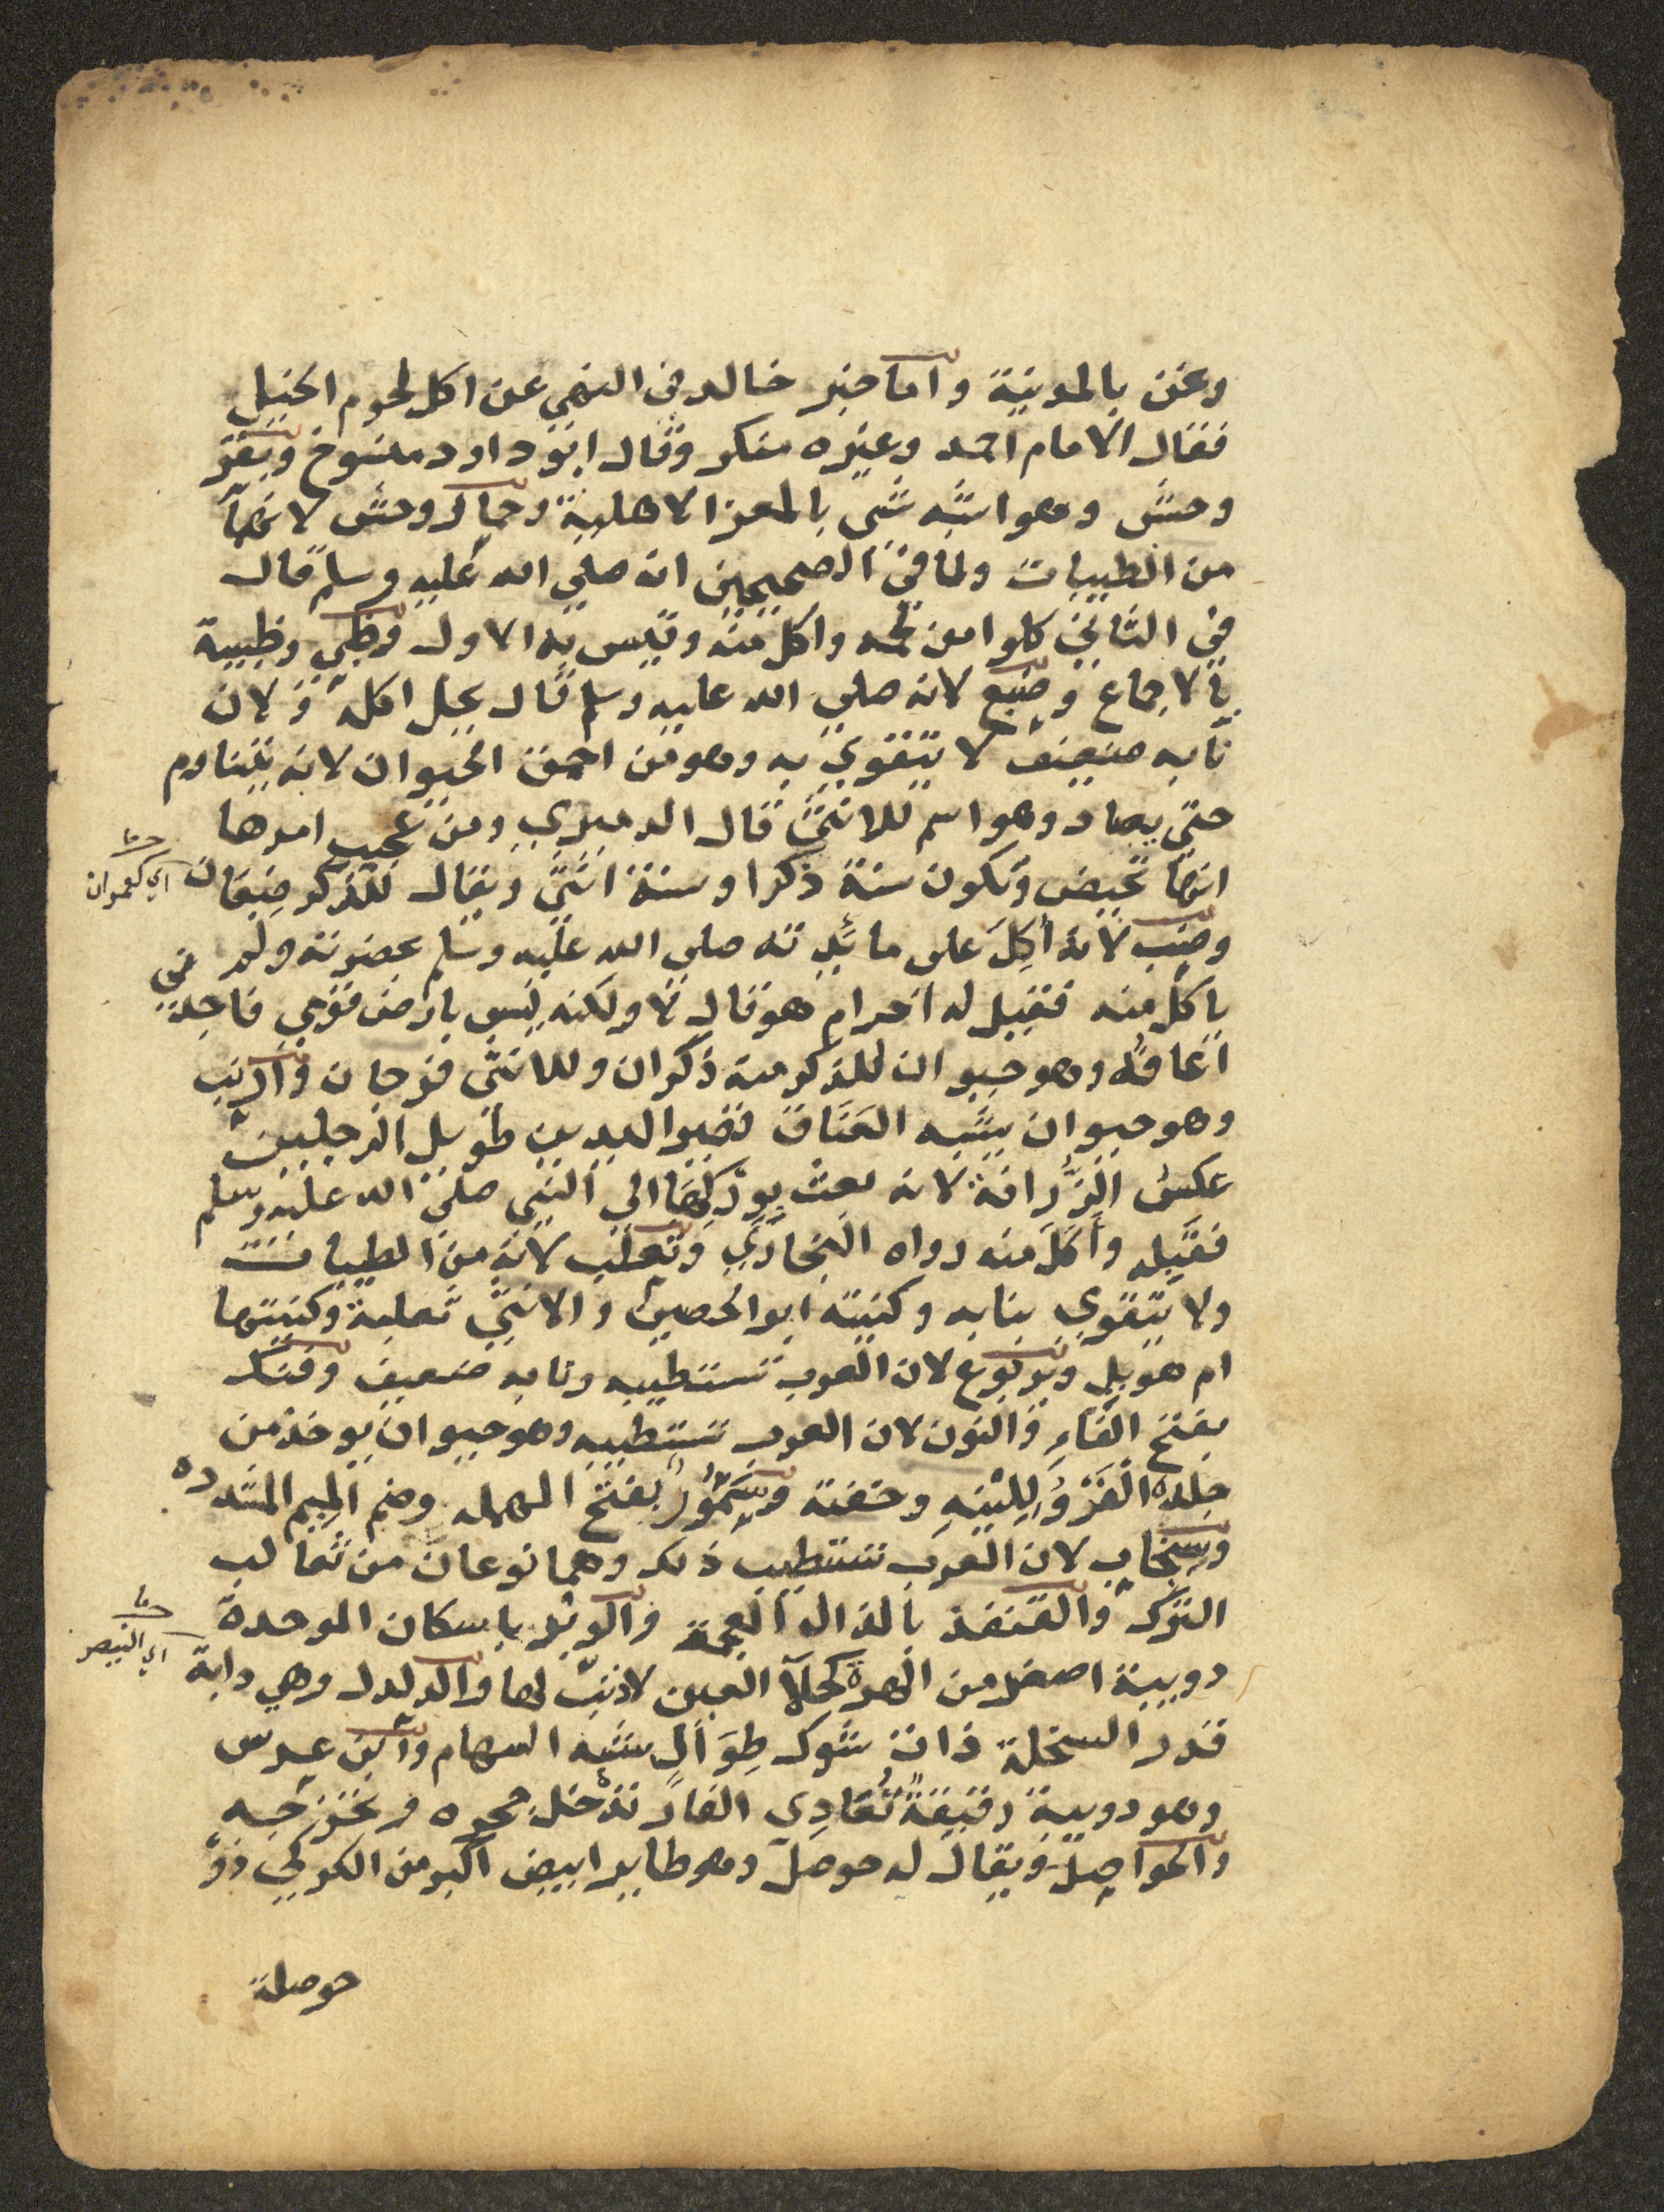 ونحن بالمدينة واما خبر خالد في النهي عن اكل لحوم الخيل
فقال الامام احمد وغيره منكر وقال ابو داود منسوخ وبقر
وحش وهو اشبه شي بالمعز الاهلية وحمار وحش لانهما
من الطيبات ولما في الصحيحين انه صلي الله عليه وسلم قال
في الثاني كلوا من لحمه واكل منه وقيس به الاول وظبي وظبية
بالاجماع وضبع لانه صلي الله عليه وسلم قال يحل اكله ولان
نابه ضعيف لا يتقوي به وهو من احمق الحيوان لانه يتناوم
حتي يصاد وهو اسم للانثي قال الدميري ومن عجيب امرها
انها تحيض وتكون سنة ذكرا وسنة انثي ويقال للذكر ضبعان
اي كعمران
وضب لانه أُكِلَ علي مائدته صلي الله عليه وسلم بحضرته ولم
ياكل منه فقيل له احرام هو قال لا ولكنه ليس بارض قومي فاجدني
اعافه وهو حيوان للذكر منه ذكران وللانثي فرجان وارنب
وهو حيوان يشبه العَنَاق قصير اليدين طويل الرجلين
عكس الزَّرافة لانه بعث بوركها الي النبي صلي الله عليه وسلم
فقبله وأَكَلَ منه رواه البخاري وثعلب لانه من الطيبات
ولا يتقوي بنابه وكنيته ابو الحصين والانثي ثعلبة وكنيتها
ام هويل ويربوع لان العرب تستطيبه ونابه ضعيف وفنك
بفتح الفاءِ والنون لان العرب تستطيبه وهو حيوان يوخذ من
جلده الفَرْوُ لِلِيْنِهِ وخفته وسَمُّوْر بفتح المهمله وضم الميم المشدده
وسنجاب لان العرب تستطيب ذلك وهما نوعان من ثعالب
الترك والقنفذ بالذال المعجمة والوبر باسكان الموحدة
دويبة اصغر من الهرة كحلآ العين لا ذنب لها والدلدل وهي دابة
اي النيص
قدر السخلة ذات شوك طِوَال يشبه السهام وابن عرس
وهو دويبة رقيقةٌ تُعَادِي الفار تدخل جحره وتخرجه
والحواصل ويقال له حوصل وهو طاير ابيض اكبر من الكركي ذو
حوصلة